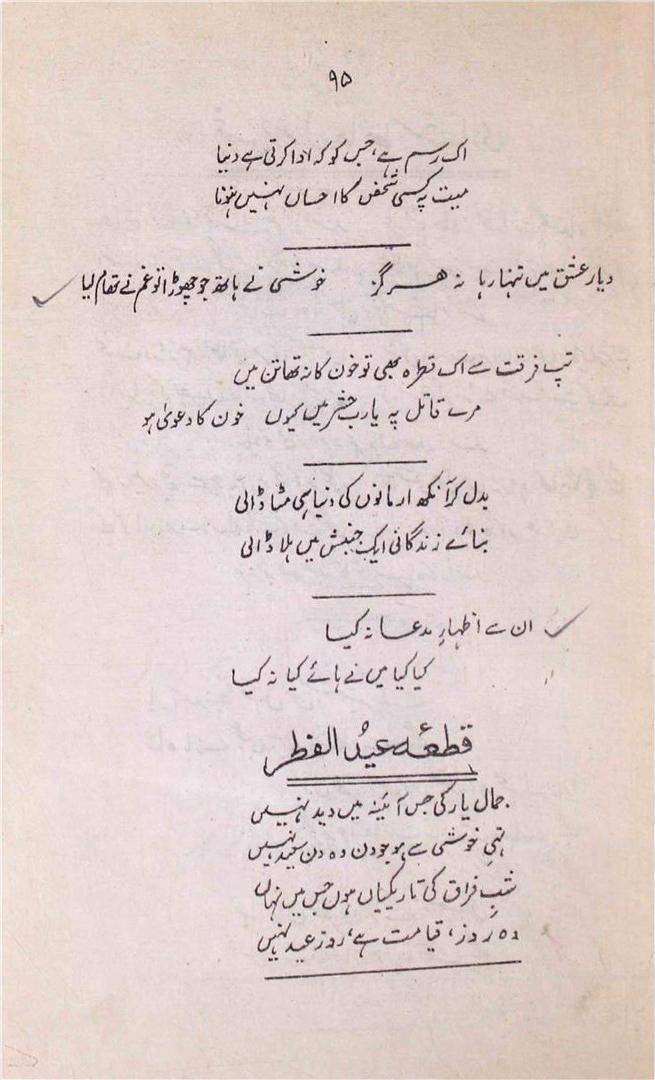 ۹۵
اک رسم ہے، جس کو کہ ادا کرتی ہے دنیا
میت پہ کسی شخص کا احساں نہیں ہوتا
دیار عشق میں تنہا رہا نہ ہرگز خوشی نے ہاتھ جو چھوڑا تو غم نے تھام لیا
تپ فرقت سے اک قطرہ بھی تو خون کا نہ تھا تن میں
مرے قاتل پہ یارب حشر میں کیوں خون کا دعویٰ ہو
بدل کر آنکھ ارمانوں کی دنیا ہی مٹا ڈالی
بنائے زندگانی ایک جنبش میں ہلا ڈالی
ان سے اظہارِ مدعا نہ کیا
کیا کیا میں نے ہائے کیا نہ کیا
قطعۂ عیدُ الفطر
جمال یار کی جس آئینہ میں دید نہیں
تہیِ خوشی سے ہو جو دن وہ دن سعید نہیں
شبِ فراق کی تاریکیاں ہوں جس میں نہاں
وہ روز، قیامت ہے، روز عید نہیں